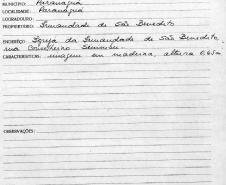 MUNICÍPIO: Paranaguá
LOCALIDADE: Paranaguá
LOGRADOURO:
PROPRIETÁRIO: Irmandade de São Benedito
ENDEREÇO: Igreja da Irmandade de São Benedito,
rua Conselheiro Sinimbú.
CARACTERÍSTICAS: imagem em madeira, altura 0,65m
OBSERVAÇÕES: